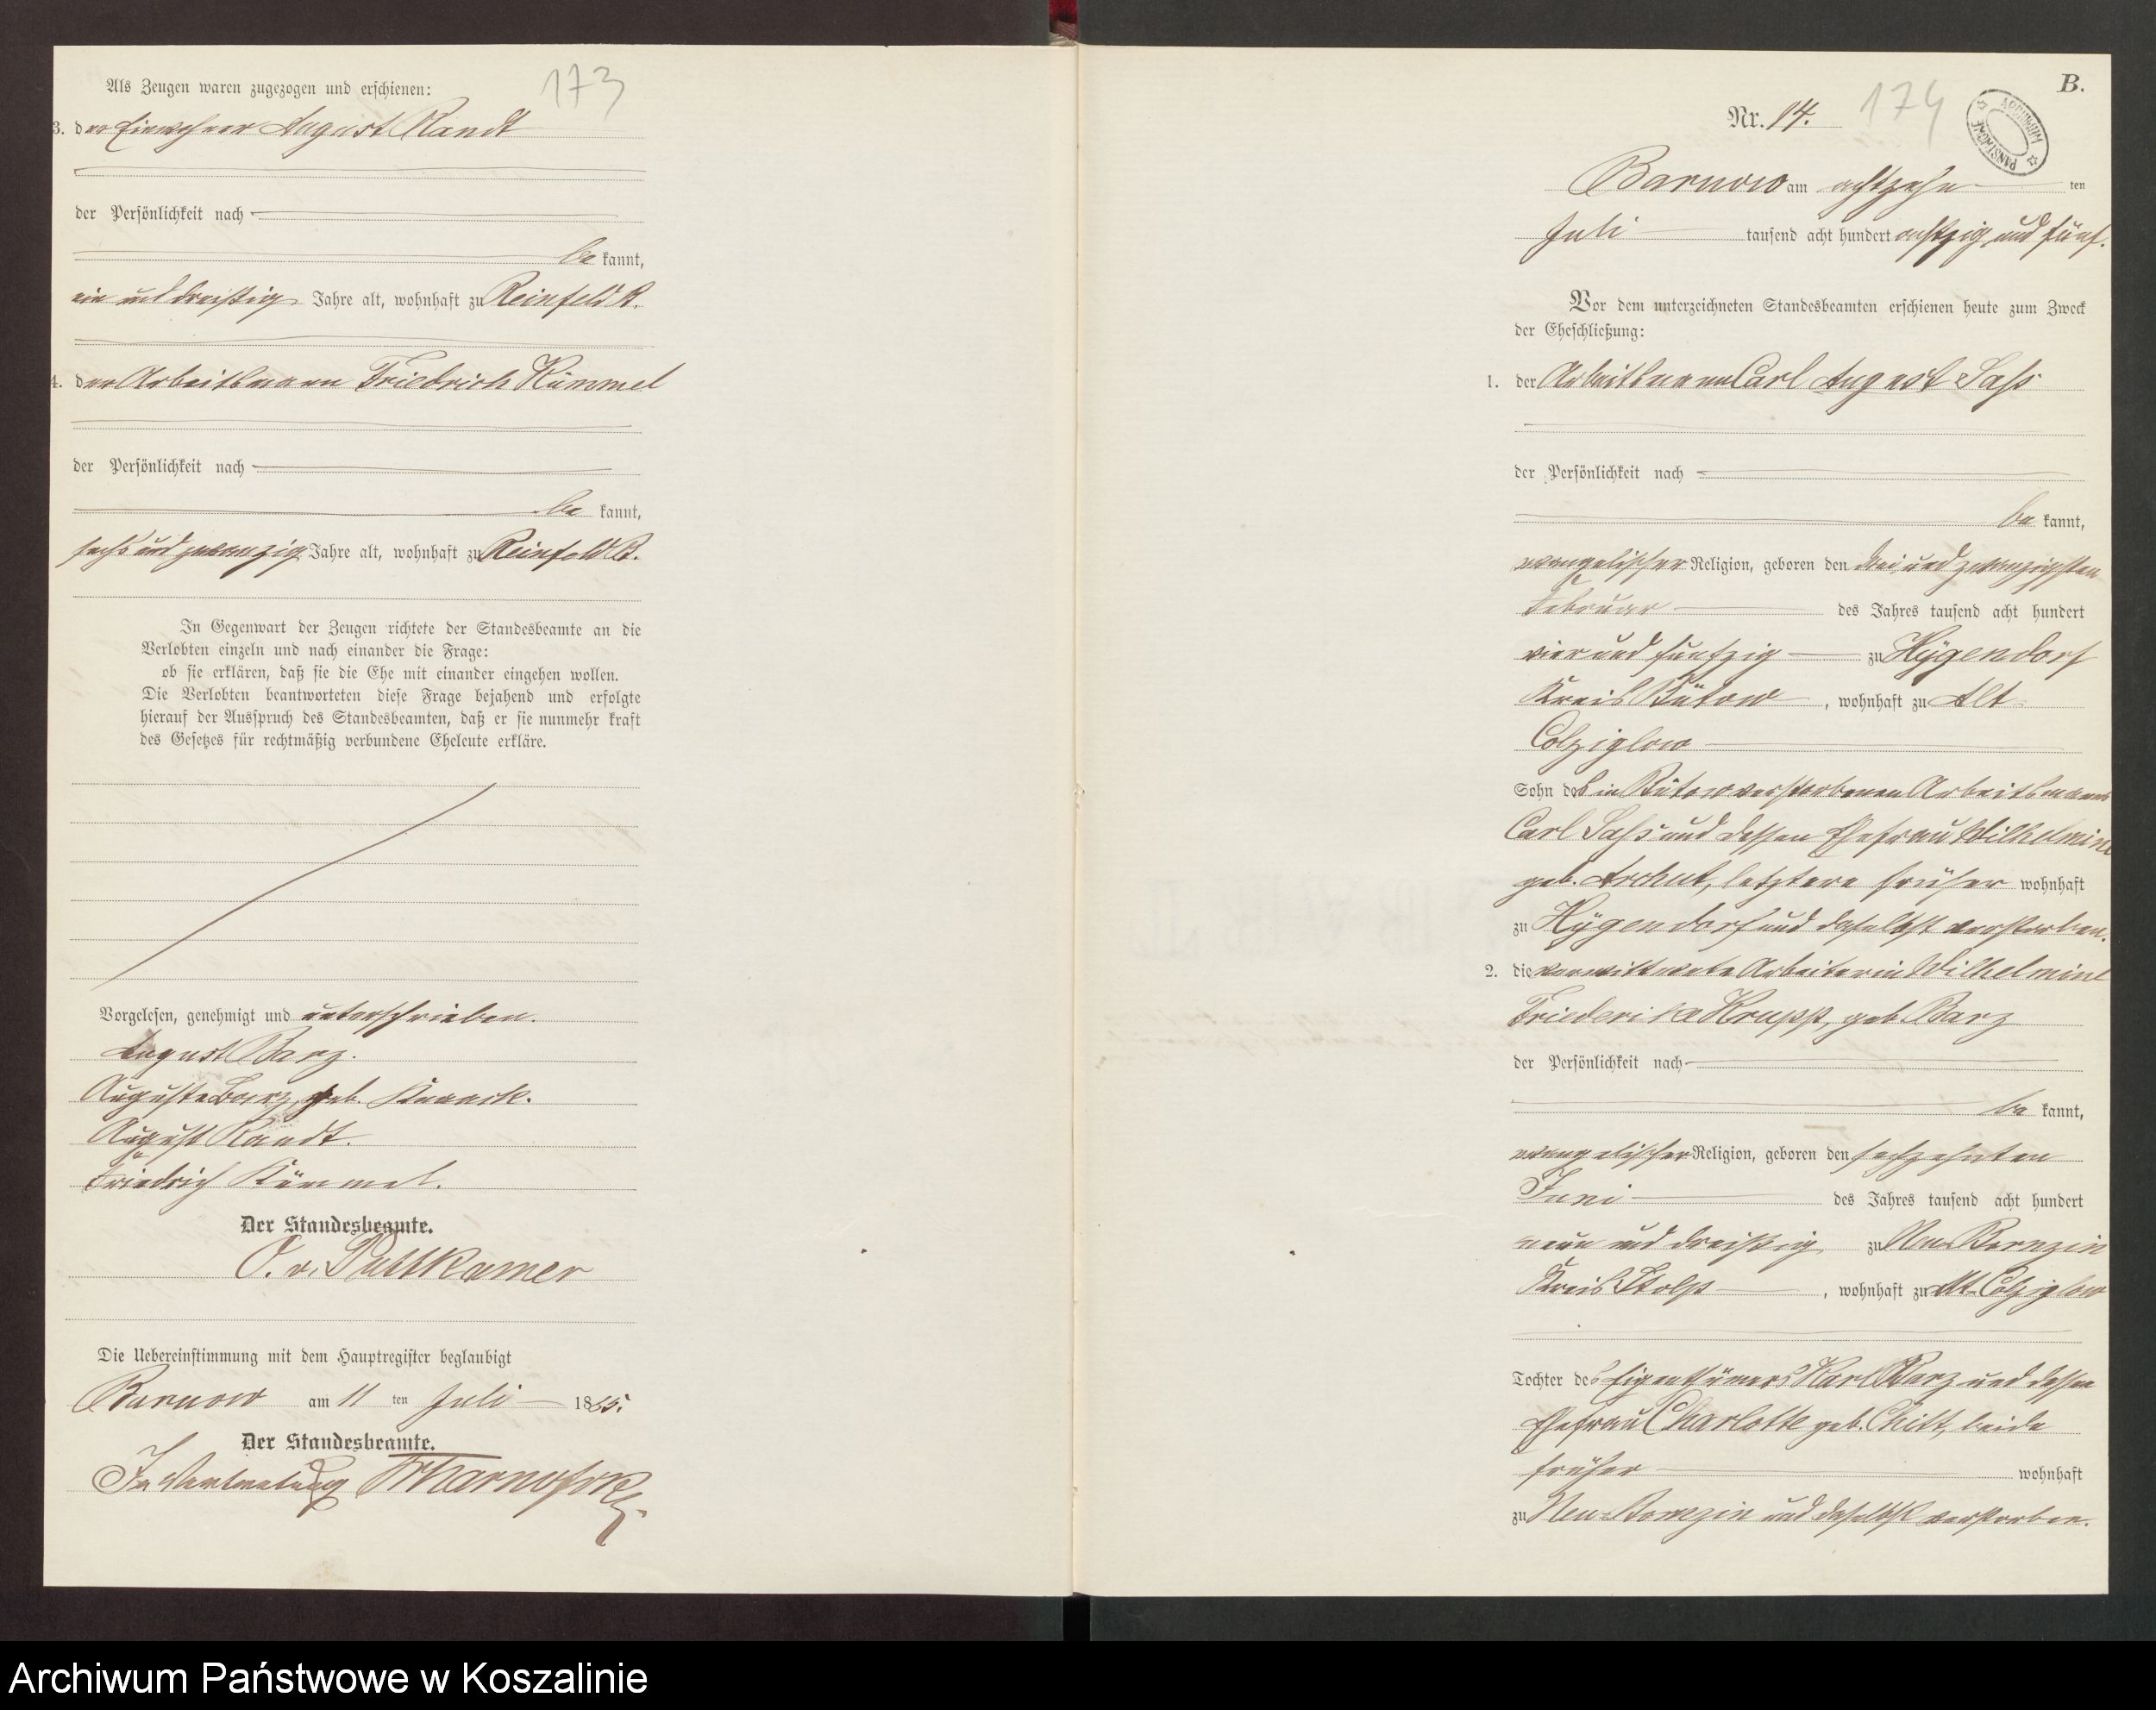 173
Als Zeugen waren zugezogen und erschienen:
3. der Einwohner August Randt
der Persönlichkeit nach
be kannt,
ein und dreißig Jahre alt, wohnhaft zu Reinfeld R.
4. der Arbeitsmann Friedrich Kümmel
der Persönlichkeit nach
be kannt,
sechs und zwanzig Jahre alt, wohnhaft zu Reinfeld
In Gegenwart der Zeugen richtete der Standesbeamte an die
Verlobten einzeln und nach einander die Frage:
ob sie erklären, daß sie die Ehe mit einander eingehen wollen.
Die Verlobten beantworteten diese Frage bejahend und erfolgte
hierauf der Ausspruch des Standesbeamten, daß er sie nunmehr kraft
des Gesetzes für rechtmäßig verbundene Eheleute erkläre.
Vorgelesen, genehmigt und unterschrieben.
August Barz.
Auguste Barz, geb. Knaack.
August Randt.
Friedrich Kümmel.
Der Standesbeamte.
O. v. Puttkamer
Die Uebereinstimmung mit dem Hauptregister beglaubigt
Barnow am 11 ten Juli 1885.
Der Standesbeamte.
In Vertretung
B.
Nr. 14. 174
ARCHIWUM PAŃSTWOWE
Barnow am achtzehn ten
Juli tausend acht hundert achtzig und fünf.
Vor dem unterzeichneten Standesbeamten erschienen heute zum Zweck
der Eheschließung:
1. der Arbeitsmann Carl August Saß
der Persönlichkeit nach
be kannt,
evangelischer Religion, geboren den drei und zwanzigsten
Februar des Jahres tausend acht hundert
vier und funfzig zu Hygendorf
Kreis Bütow, wohnhaft zu Alt
Colziglow
Sohn des in Bütow verstorbenen Arbeitsmanns
Carl Saß und dessen Ehefrau Wilhelmine
geb. Archut, letztere früher wohnhaft
zu Hygendorf und daselbst verstorben.
2. die verwittwete Arbeiterin Wilhelmine
Friederike Krupp, geb. Barz
der Persönlichkeit nach
be kannt,
evangelischer Religion, geboren den sechzehnten
Juni des Jahres tausend acht hundert
neun und dreißig zu Neu
Kreis Stolp, wohnhaft zu Alt Colziglow
Tochter des Eigenthümers Karl Barz und dessen
Ehefrau Charlotte geb. Chitt, beide
früher wohnhaft
zu Neu und daselbst verstorben.
Archiwum Państwowe w Koszalinie